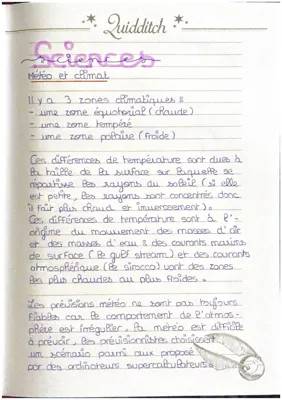 Quidditch
Sciences
Météo et climat
Il y a 3 zones climatiques :
- une zone équatorial (chaude)
- une zone tempéré
- une zone polaire (froide)
Ces différences de température sont dues à
la taille de la surface sur laquelle se
répartisse les rayons du soleil (si elle
est petite, les rayons sont concentrés donc
il fait plus chaud et inversement).
Ces différences de température sont à l'-
origine du mouvement des masses d'air
et des masses d'eau : des courants marins
de surface (le gulf stream) et des courants
atmosphérique (le sirocco) vont des zones
les plus chaudes au plus froides.
Les prévisions météo ne sont pas toujours
fiables car le comportement de l'atmos-
phère est irrégulier. La météo est difficile
à prévoir, les prévisionnistes choisissent
un scénario parmi aux proposé
par des ordinateurs supercalculateurs